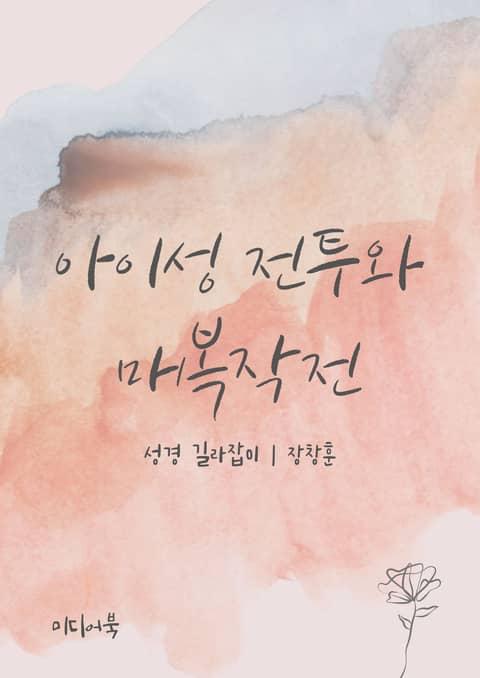 아이성 전투와
매복작전
성경 길라잡이 | 장창훈
미디어북